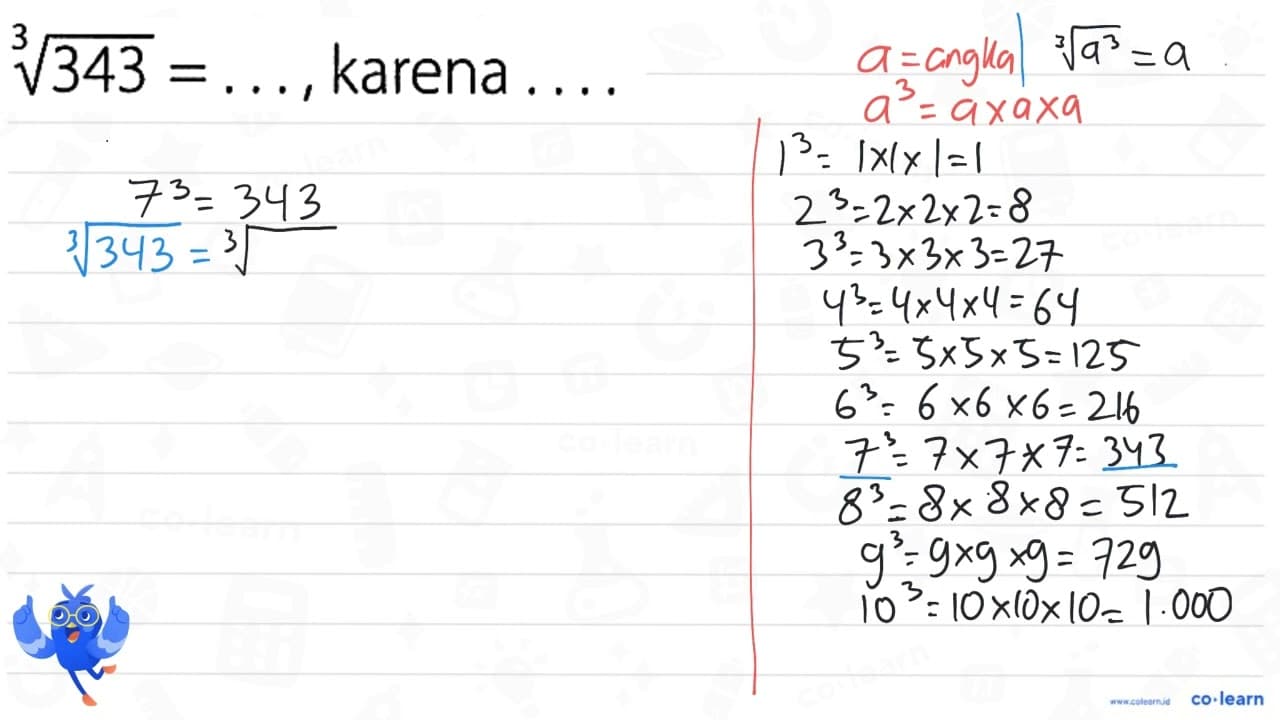 ∛343 = ..., karena ....
7³ = 343
∛343 = ∛
a = angka | ∛a³ = a
a³ = a x a x a
1³ = 1x1x1 = 1
2³ = 2 x 2 x 2 = 8
3³ = 3 x 3 x 3 = 27
4³ = 4 x 4 x 4 = 64
5³ = 5 x 5 x 5 = 125
6³ = 6 x 6 x 6 = 216
7³ = 7 x 7 x 7 = 343
8³ = 8 x 8 x 8 = 512
9³ = 9 x 9 x 9 = 729
10³ = 10 x 10 x 10 = 1.000
www.colearn.id co·learn